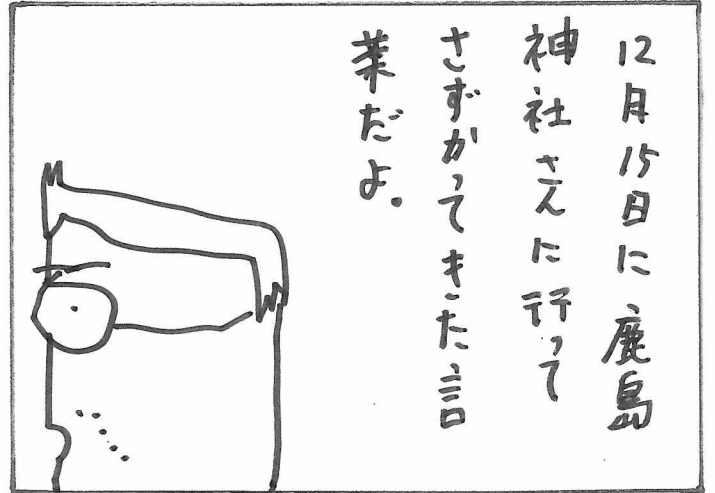 12月15日に鹿島
神社さんに行って
さずかってきた言
葉だよ。